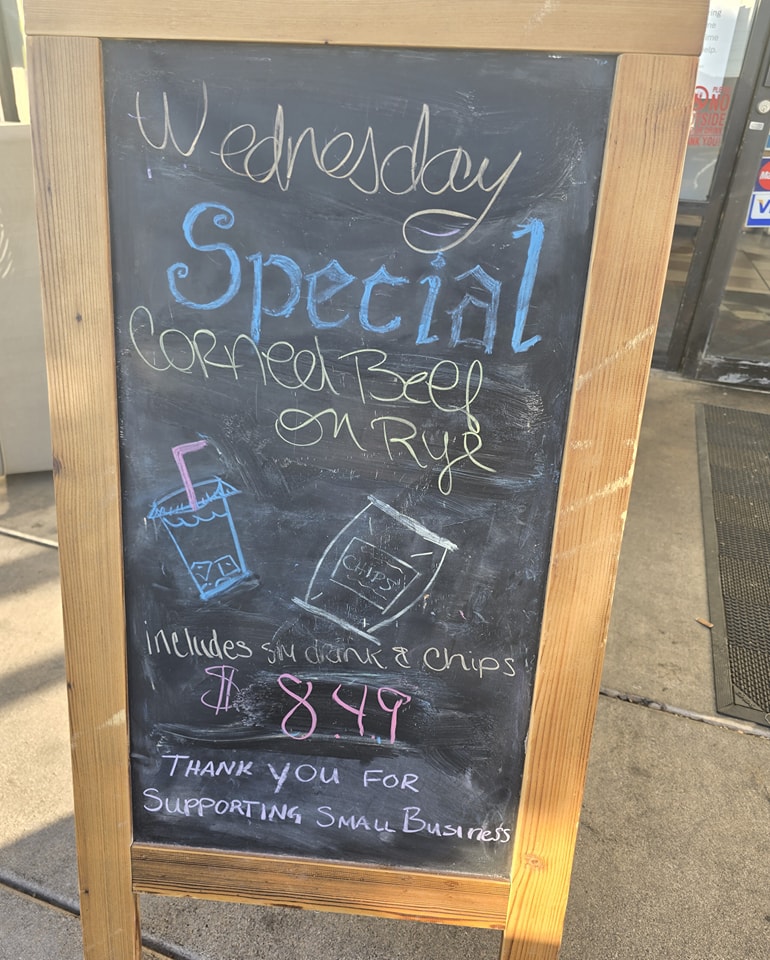 Wednesday
Special
Corned Beef
on Rye
CHIPS
includes sm drink & chips
$ 8.49
THANK YOU FOR
SUPPORTING SMALL BUSINESS